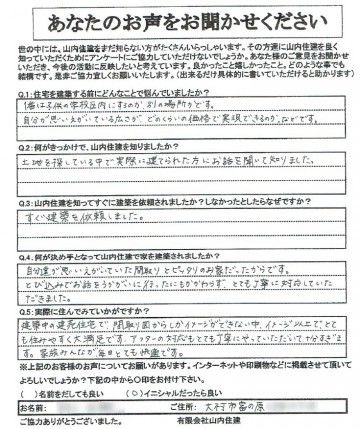 あなたのお声をお聞かせください
世の中には、山内住建をまだ知らない方がたくさんいらっしゃいます。その方達に山内住建を良く
知っていただくためにアンケートにご協力していただけないでしょうか。あなた様のご意見をお聞かせ
いただき、今後の活動に反映したいと考えています。良かったこと嬉しかったこと。どのような事でも
結構です。是非ご協力宜しくお願いいたします。(出来るだけ具体的に書いていただけると助かります)
Q.1:住宅を建築する前にどんなことで悩んでいましたか?
1番は子供の学校区内にするのか、別の場所かです。
自分が思いえがいている広さが、どのくらいの価格で実現できるのか、などです。
Q.2:何がきっかけで、山内住建を知りましたか?
土地を探している中で実際に建てられた方にお話を聞いて知りました。
Q.3:山内住建を知ってすぐに建築を依頼されましたか?しなかったとしたらなぜですか?
すぐ建築を依頼しました。
Q.4:何が決め手となって山内住建で家を建築されましたか?
自分達が思いえがいていた間取りとピッタリのお家だったからです。
とび込みでお話をうかがいに行ったにもかかわらず、とても丁寧に対応していた
だきました。
Q.5:実際に住んでみていかがですか?
建築中の建売住宅で、間取り図からしかイメージができない中、イメージ以上で、とて
も住みやすく大満足です。アフターの対応もとても丁寧にやっていただいて十分すぎま
す。家族みんなが毎日とても快適です。
※上記のお客様のお声についてお願いがあります。インターネットや印刷物などに掲載させて頂いて
よろしいでしょうか?下記の中から〇印をお付け下さい。
( )名前をだしても良い (〇)イニシャルだったら良い
お名前: ご住所: 大村市富の原
ご協力ありがとうございました。 有限会社山内住建